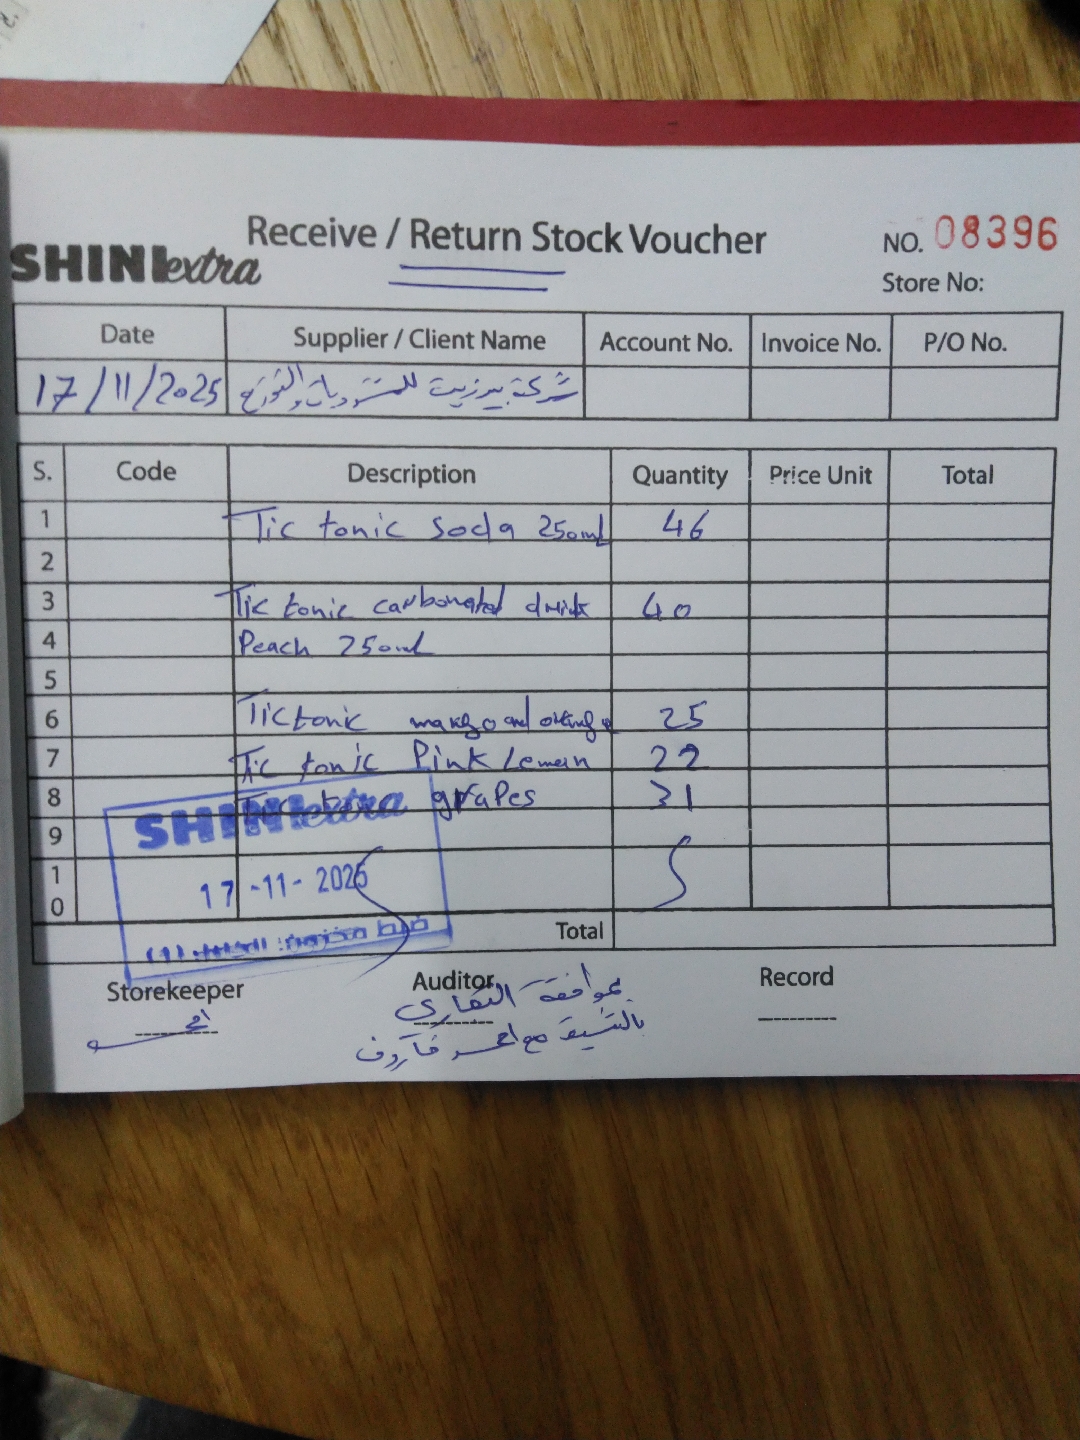 Receive / Return Stock Voucher
NO. 08396
SHINI extra
Store No:
Date Supplier / Client Name Account No. Invoice No. P/O No.
17/11/2025 شركة بيرزيت للمشروبات والتوزيع
S. Code Description Quantity Price Unit Total
1 Tic tonic soda 250mL 46
2
3 Tic tonic carbonated drink 40
4 Peach 250mL
5
6 Tic tonic mango and orange 25
7 Tic tonic Pink lemon 22
8 Tic tonic grapes 31
9
10
Total
SHINI extra
17 -11- 2025
Storekeeper Auditor Record
احمد
بموافقة
بالتنسيق مع احمد فاروق